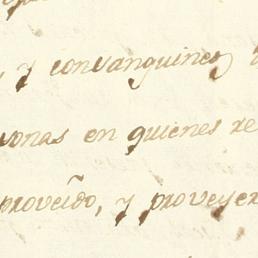 , y convanguineos
vonas en quienes re
proveido, y proveyer